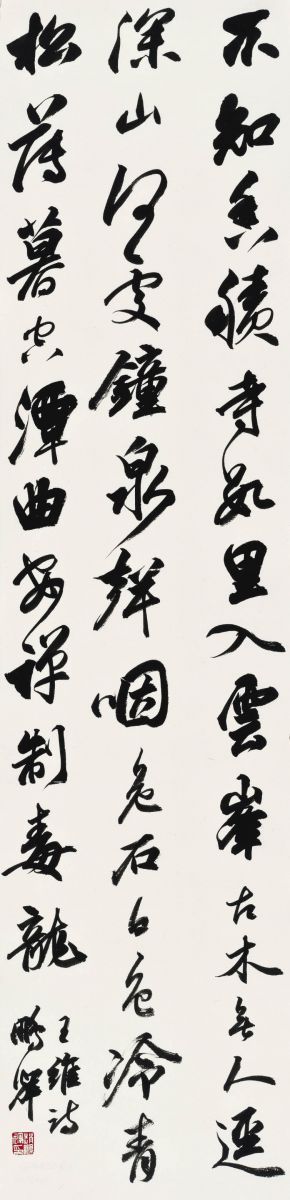 不知香積寺數里入雲峯古木無人逕
深山何處鐘泉聲咽危石日色冷青
松薄暮空潭曲安禪制毒龍
王維詩
鵬舉